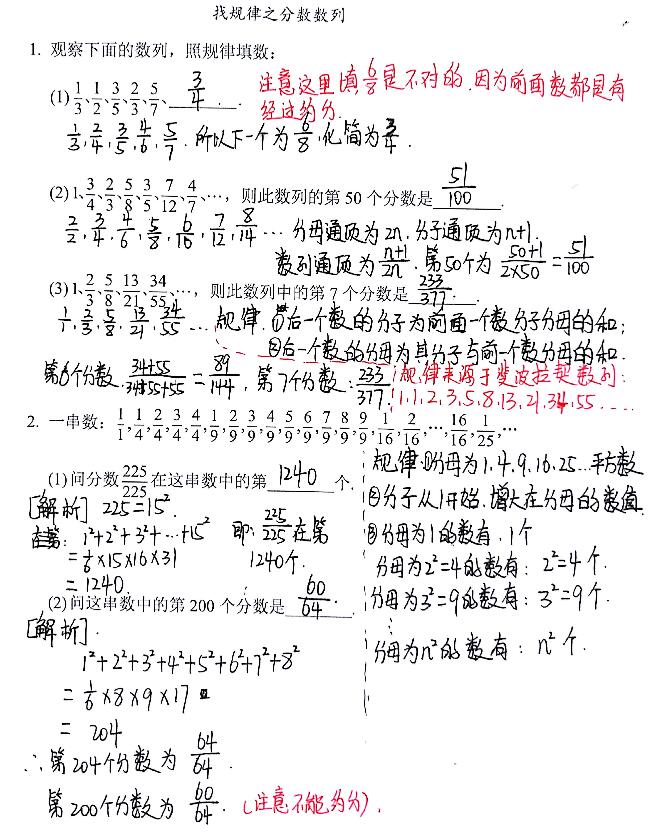 找规律之分数数列
1. 观察下面的数列，照规律填数：
(1) 1/3、1/2、3/5、2/3、5/7、 3/4 .
注意这里填6/8是不对的.因为前面数都是有
经过约分.
1/3, 2/4, 3/5, 4/6, 5/7. 所以下一个为6/8, 化简为3/4.
(2) 1、3/4、2/3、5/8、3/5、7/12、4/7、…，则此数列的第 50 个分数是 51/100 .
2/2, 3/4, 4/6, 5/8, 6/10, 7/12, 8/14 … 分母通项为2n, 分子通项为n+1.
数列通项为 n+1/2n. 第50个为 50+1/2×50 = 51/100
(3) 1、2/3、5/8、13/21、34/55、…，则此数列中的第 7 个分数是 233/377 .
1/1, 2/3, 5/8, 13/21, 34/55 … 规律. ①后一个数的分子为前面一个数分子分母的和;
②后一个数的分母为其分子与前一个数分母的和.
第6个分数. 34+55/34+55+55 = 89/144, 第7个分数: 233/377.
规律来源于斐波拉契数列:
1,1,2,3,5,8,13,21,34,55....
2. 一串数： 1/1, 1/4, 2/4, 3/4, 4/4, 1/9, 2/9, 3/9, 4/9, 5/9, 6/9, 7/9, 8/9, 9/9, 1/16, 2/16, …, 16/16, 1/25, …
(1) 问分数 225/225 在这串数中的第 1240 个.
[解析] 225=15²
在第: 1²+2²+3²+…+15²
= 1/6×15×16×31
= 1240.
即: 225/225在第
1240个.
规律:①分母为1.4.9.16.25…平方数
②分子从1开始.增大在分母的数值
③分母为1的数有. 1个
分母为2²=4的数有: 2²=4个.
分母为3²=9的数有: 3²=9个.
⋮
分母为n²的数有: n²个.
(2) 问这串数中的第 200 个分数是 60/64 .
[解析].
1²+2²+3²+4²+5²+6²+7²+8²
= 1/6×8×9×17
= 204
∴第204个分数为 64/64.
第200个分数为 60/64. (注意不能约分).